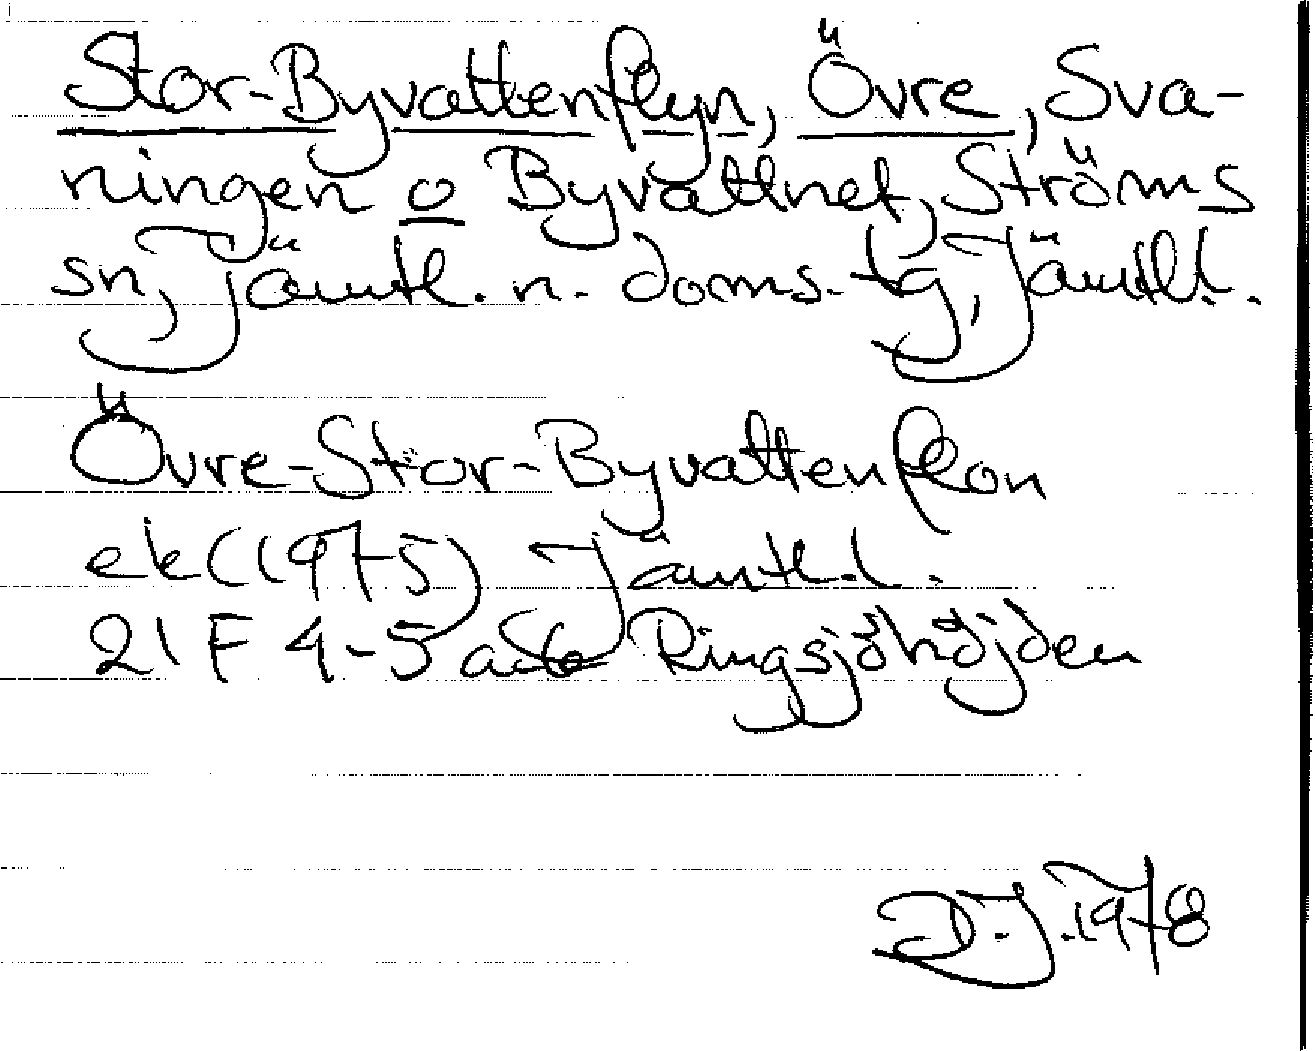 Stor-Byvattenflyn, Övre, Sva-
ningen o Byvattnet, Ströms
sn, Jämtl. n. doms. tg, Jämtl l.
Övre-Stor-Byvattenflon
ek (1975) Jämtl. l.
21 F 4-5 a Ringsjöhöjden
D.J. 1978